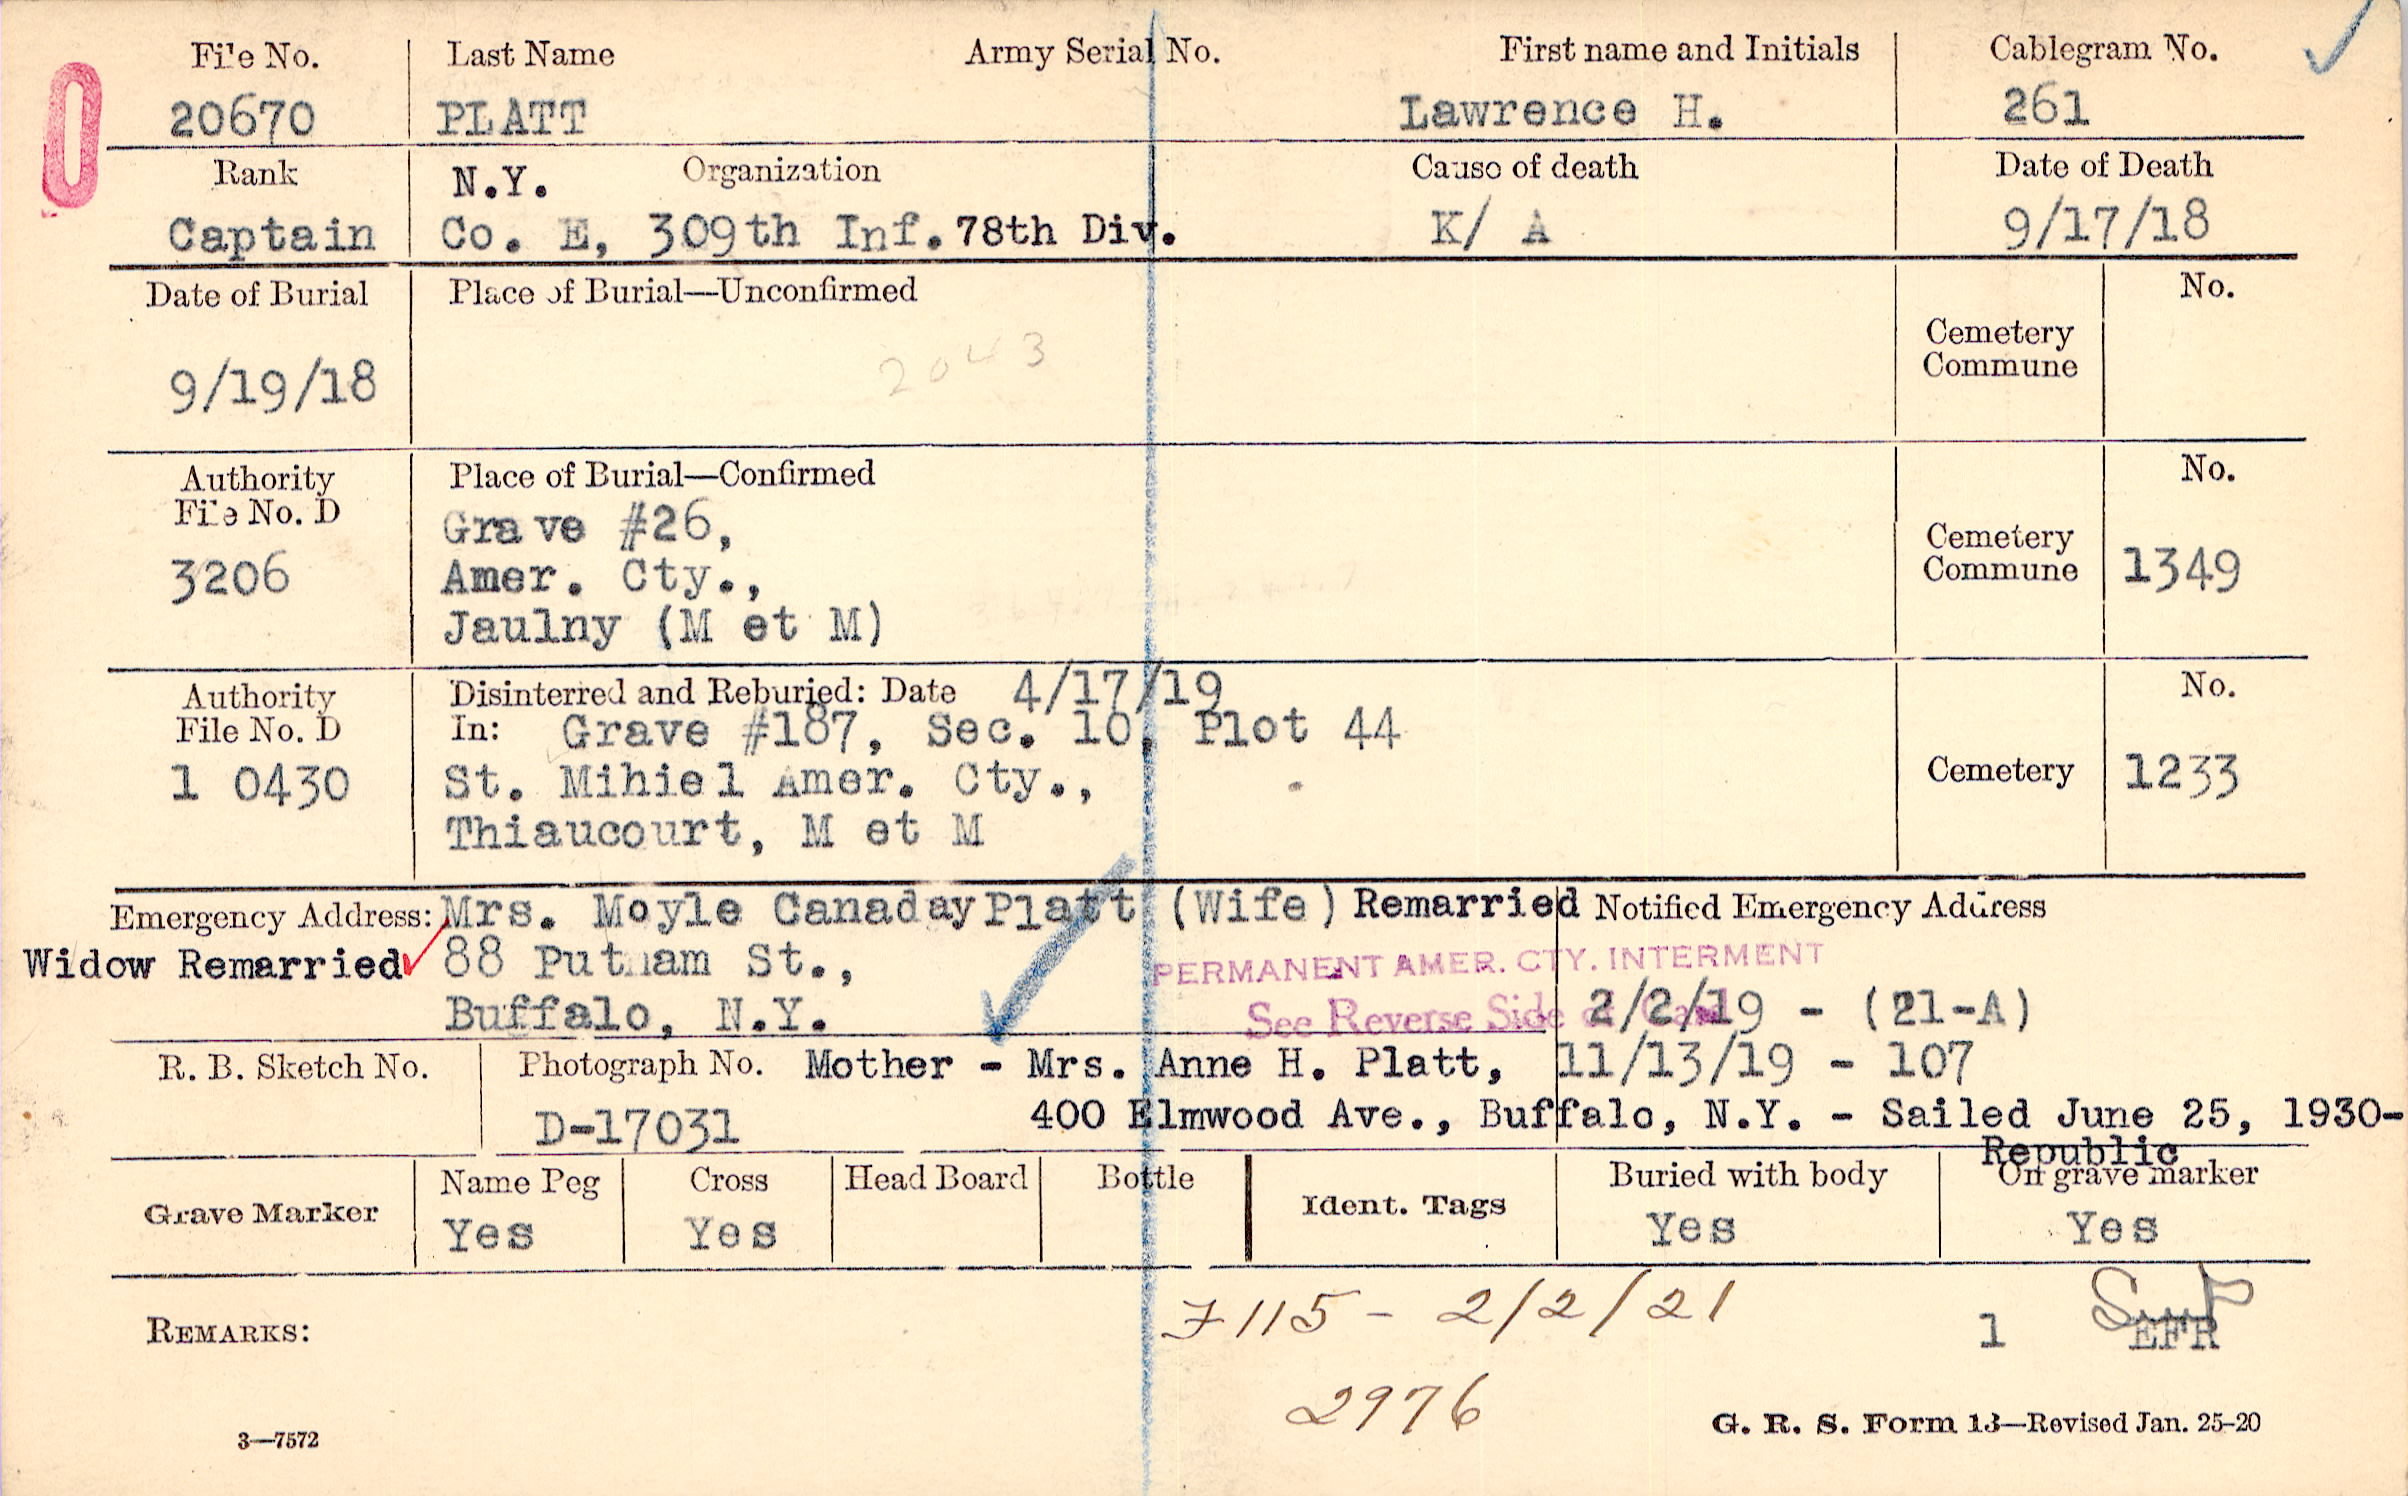 File No. Last Name Army Serial No. First name and Initials Cablegram No.
20670 PLATT Lawrence H. 261
Rank N.Y. Organization Cause of death Date of Death
Captain Co. E, 309th Inf. 78th Div. K/ A 9/17/18
Date of Burial Place of Burial—Unconfirmed No.
Cemetery
Commune
9/19/18
Authority Place of Burial—Confirmed No.
File No. D Grave #26,
3206 Amer. Cty., Cemetery
Commune 1349
Jaulny (M et M)
Authority Disinterred and Reburied: Date 4/17/19 No.
File No. D In: Grave #187, Sec. 10, Plot 44
1 0430 St. Mihiel Amer. Cty., Cemetery 1233
Thiaucourt, M et M
Emergency Address: Mrs. Moyle Canaday Platt (Wife) Remarried Notified Emergency Address
Widow Remarried 88 Putnam St., PERMANENT AMER. CTY. INTERMENT
Buffalo, N.Y. See Reverse Side of Card 2/2/19 - (21-A)
R. B. Sketch No. Photograph No. Mother - Mrs. Anne H. Platt, 11/13/19 - 107
D-17031 400 Elmwood Ave., Buffalo, N.Y. - Sailed June 25, 1930-
Republic
Grave Marker Name Peg Cross Head Board Bottle Ident. Tags Buried with body On grave marker
Yes Yes Yes Yes
REMARKS: F115 - 2/2/21 1 EFR
2976
3—7572 G. R. S. Form 13—Revised Jan. 25-20